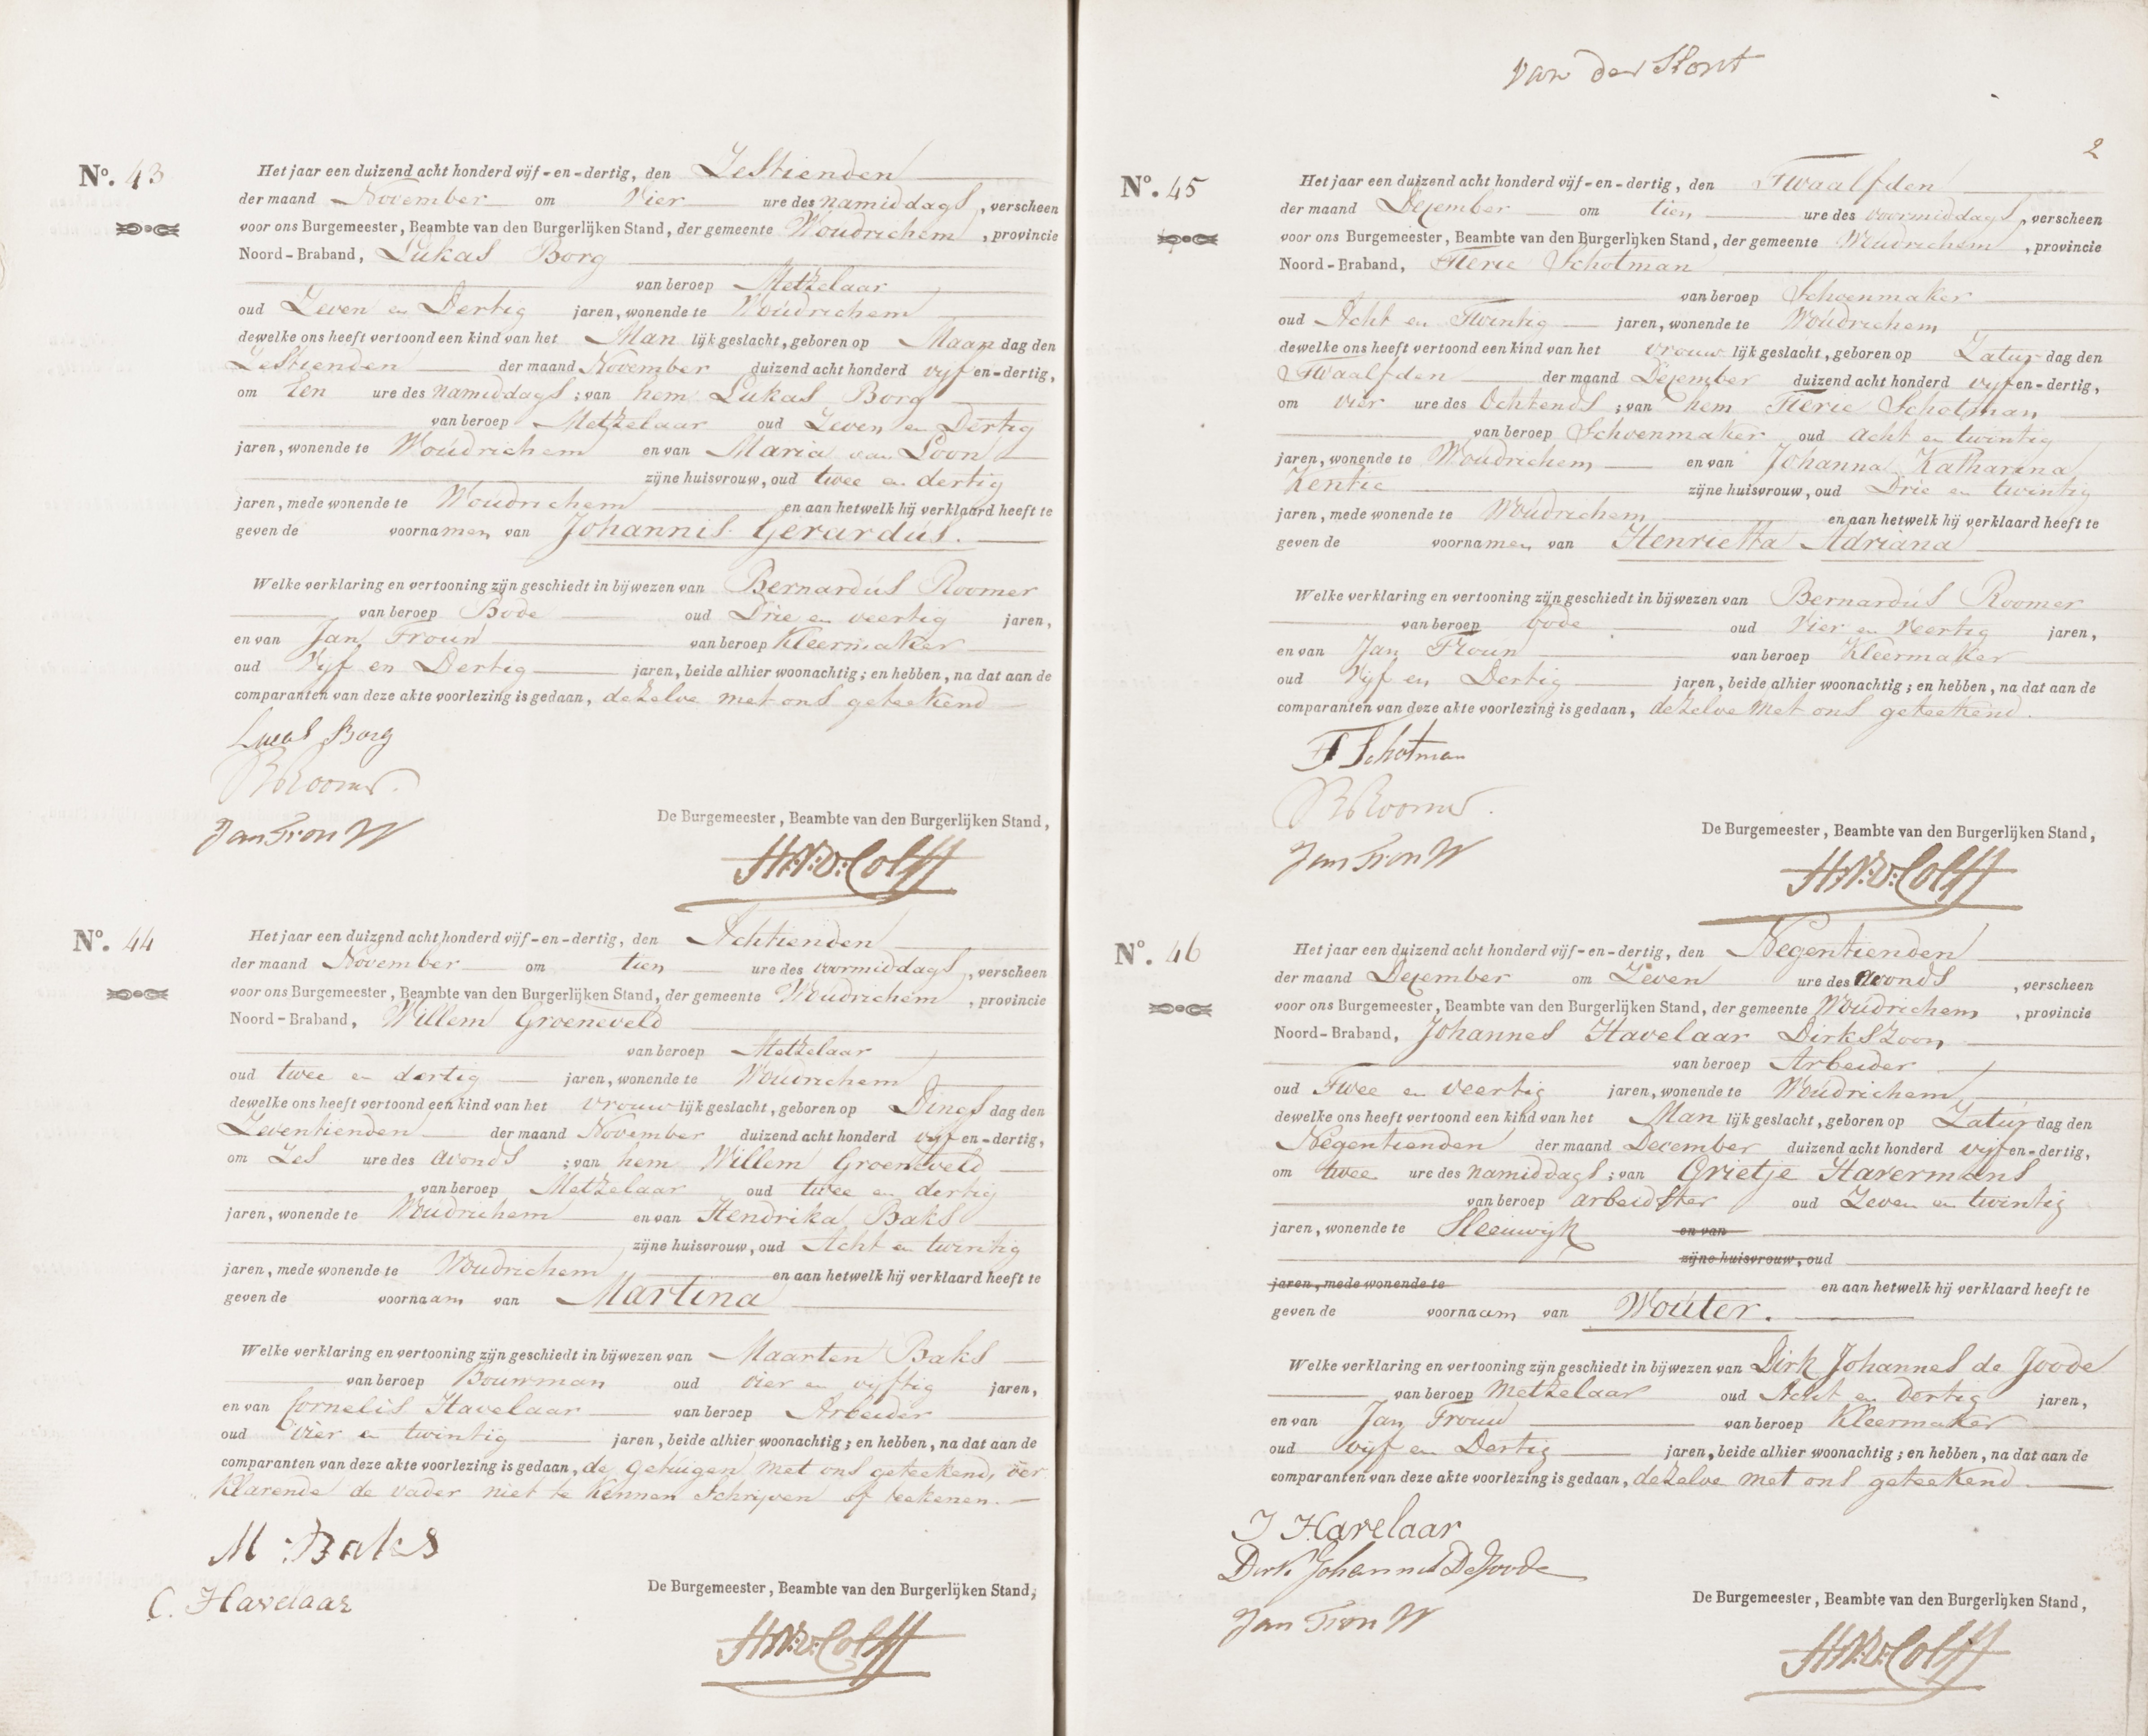 Nº. 43
Het jaar een duizend acht honderd vijf-en-dertig, den Zestienden
der maand November om Vier ure des namiddags, verscheen
voor ons Burgemeester, Beambte van den Burgerlijken Stand, der gemeente Woudrichem, provincie
Noord-Braband, Lukas Borg
van beroep Metzelaar
oud Zeven en Dertig jaren, wonende te Woudrichem
dewelke ons heeft vertoond een kind van het Man lijk geslacht, geboren op Maan dag den
Zestienden der maand November duizend acht honderd vijf en-dertig,
om Een ure des namiddags; van hem Lukas Borg
van beroep Metzelaar oud Zeven en Dertig
jaren, wonende te Woudrichem en van Maria van Loon
zijne huisvrouw, oud twee en dertig
jaren, mede wonende te Woudrichem en aan hetwelk hij verklaard heeft te
geven de voornamen van Johannis Gerardus.
Welke verklaring en vertooning zijn geschiedt in bijwezen van Bernardus Roomer
van beroep Bode oud Drie en veertig jaren,
en van Jan Trouw van beroep Kleermaker
oud Vijf en Dertig jaren, beide alhier woonachtig; en hebben, na dat aan de
comparanten van deze akte voorlezing is gedaan, dezelve met ons geteekend
Lucas Borg
B Roomer.
Jan Trou W
De Burgemeester, Beambte van den Burgerlijken Stand,
Nº. 44
Het jaar een duizend acht honderd vijf-en-dertig, den Achtienden
der maand November om tien ure des voormiddags, verscheen
voor ons Burgemeester, Beambte van den Burgerlijken Stand, der gemeente Woudrichem, provincie
Noord-Braband, Willem Groeneveld
van beroep Metzelaar
oud twee en dertig jaren, wonende te Woudrichem
dewelke ons heeft vertoond een kind van het vrouw lijk geslacht, geboren op Dings dag den
Zeventienden der maand November duizend acht honderd vijf en-dertig,
om Zes ure des avonds; van hem Willem Groeneveld
van beroep Metzelaar oud twee en dertig
jaren, wonende te Woudrichem en van Hendrika Baks
zijne huisvrouw, oud Acht en twintig
jaren, mede wonende te Woudrichem en aan hetwelk hij verklaard heeft te
geven de voornaam van Martina
Welke verklaring en vertooning zijn geschiedt in bijwezen van Maarten Baks
van beroep Bouwman oud vier en vijftig jaren,
en van Cornelis Havelaar van beroep Arbeider
oud vier en twintig jaren, beide alhier woonachtig; en hebben, na dat aan de
comparanten van deze akte voorlezing is gedaan, de getuigen met ons geteekend, ver
klarende de vader niet te kennen schrijven of teekenen.
M Baks
C. Havelaar
De Burgemeester, Beambte van den Burgerlijken Stand,
van der
2
Nº. 45
Het jaar een duizend acht honderd vijf-en-dertig, den Twaalfden
der maand Dezember om tien ure des voormiddags, verscheen
voor ons Burgemeester, Beambte van den Burgerlijken Stand, der gemeente Woudrichem, provincie
Noord-Braband, Flerie Schotman
van beroep Schoenmaker
oud Acht en Twintig jaren, wonende te Woudrichem
dewelke ons heeft vertoond een kind van het vrouw lijk geslacht, geboren op Zatur dag den
Twaalfden der maand Dezember duizend acht honderd vijf en-dertig,
om vier ure des Ochtends; van hem Flerie Schotman
van beroep Schoenmaker oud acht en twintig
jaren, wonende te Woudrichem en van Johanna Katharina
Kentie zijne huisvrouw, oud Drie en twintig
jaren, mede wonende te Woudrichem en aan hetwelk hij verklaard heeft te
geven de voornamen van Henrietta Adriana
Welke verklaring en vertooning zijn geschiedt in bijwezen van Bernardus Roomer
van beroep bode oud Vier en Veertig jaren,
en van Jan Trouw van beroep Kleermaker
oud Vijf en Dertig jaren, beide alhier woonachtig; en hebben, na dat aan de
comparanten van deze akte voorlezing is gedaan, dezelve met ons geteekend.
F Schotman
B Roomer.
Jan Trou W
De Burgemeester, Beambte van den Burgerlijken Stand,
Nº. 46
Het jaar een duizend acht honderd vijf-en-dertig, den Negentienden
der maand Dezember om Zeven ure des avonds, verscheen
voor ons Burgemeester, Beambte van den Burgerlijken Stand, der gemeente Woudrichem, provincie
Noord-Braband, Johannes Havelaar Dirkszoon
van beroep Arbeider
oud Twee en veertig jaren, wonende te Woudrichem
dewelke ons heeft vertoond een kind van het Man lijk geslacht, geboren op Zatur dag den
Negentienden der maand December duizend acht honderd vijf en-dertig,
om twee ure des namiddags; van Grietje Havermans
van beroep arbeidster oud Zeven en twintig
jaren, wonende te Sleeuwijk en van
zijne huisvrouw, oud
jaren, mede wonende te en aan hetwelk hij verklaard heeft te
geven de voornaam van Wouter.
Welke verklaring en vertooning zijn geschiedt in bijwezen van Dirk Johannes de Joode
van beroep Metzelaar oud Acht en Dertig jaren,
en van Jan Trouw van beroep Kleermaker
oud vijf en Dertig jaren, beide alhier woonachtig; en hebben, na dat aan de
comparanten van deze akte voorlezing is gedaan, dezelve met ons geteekend
J Havelaar
Dirk Johannes De Joode
Jan Trou W
De Burgemeester, Beambte van den Burgerlijken Stand,